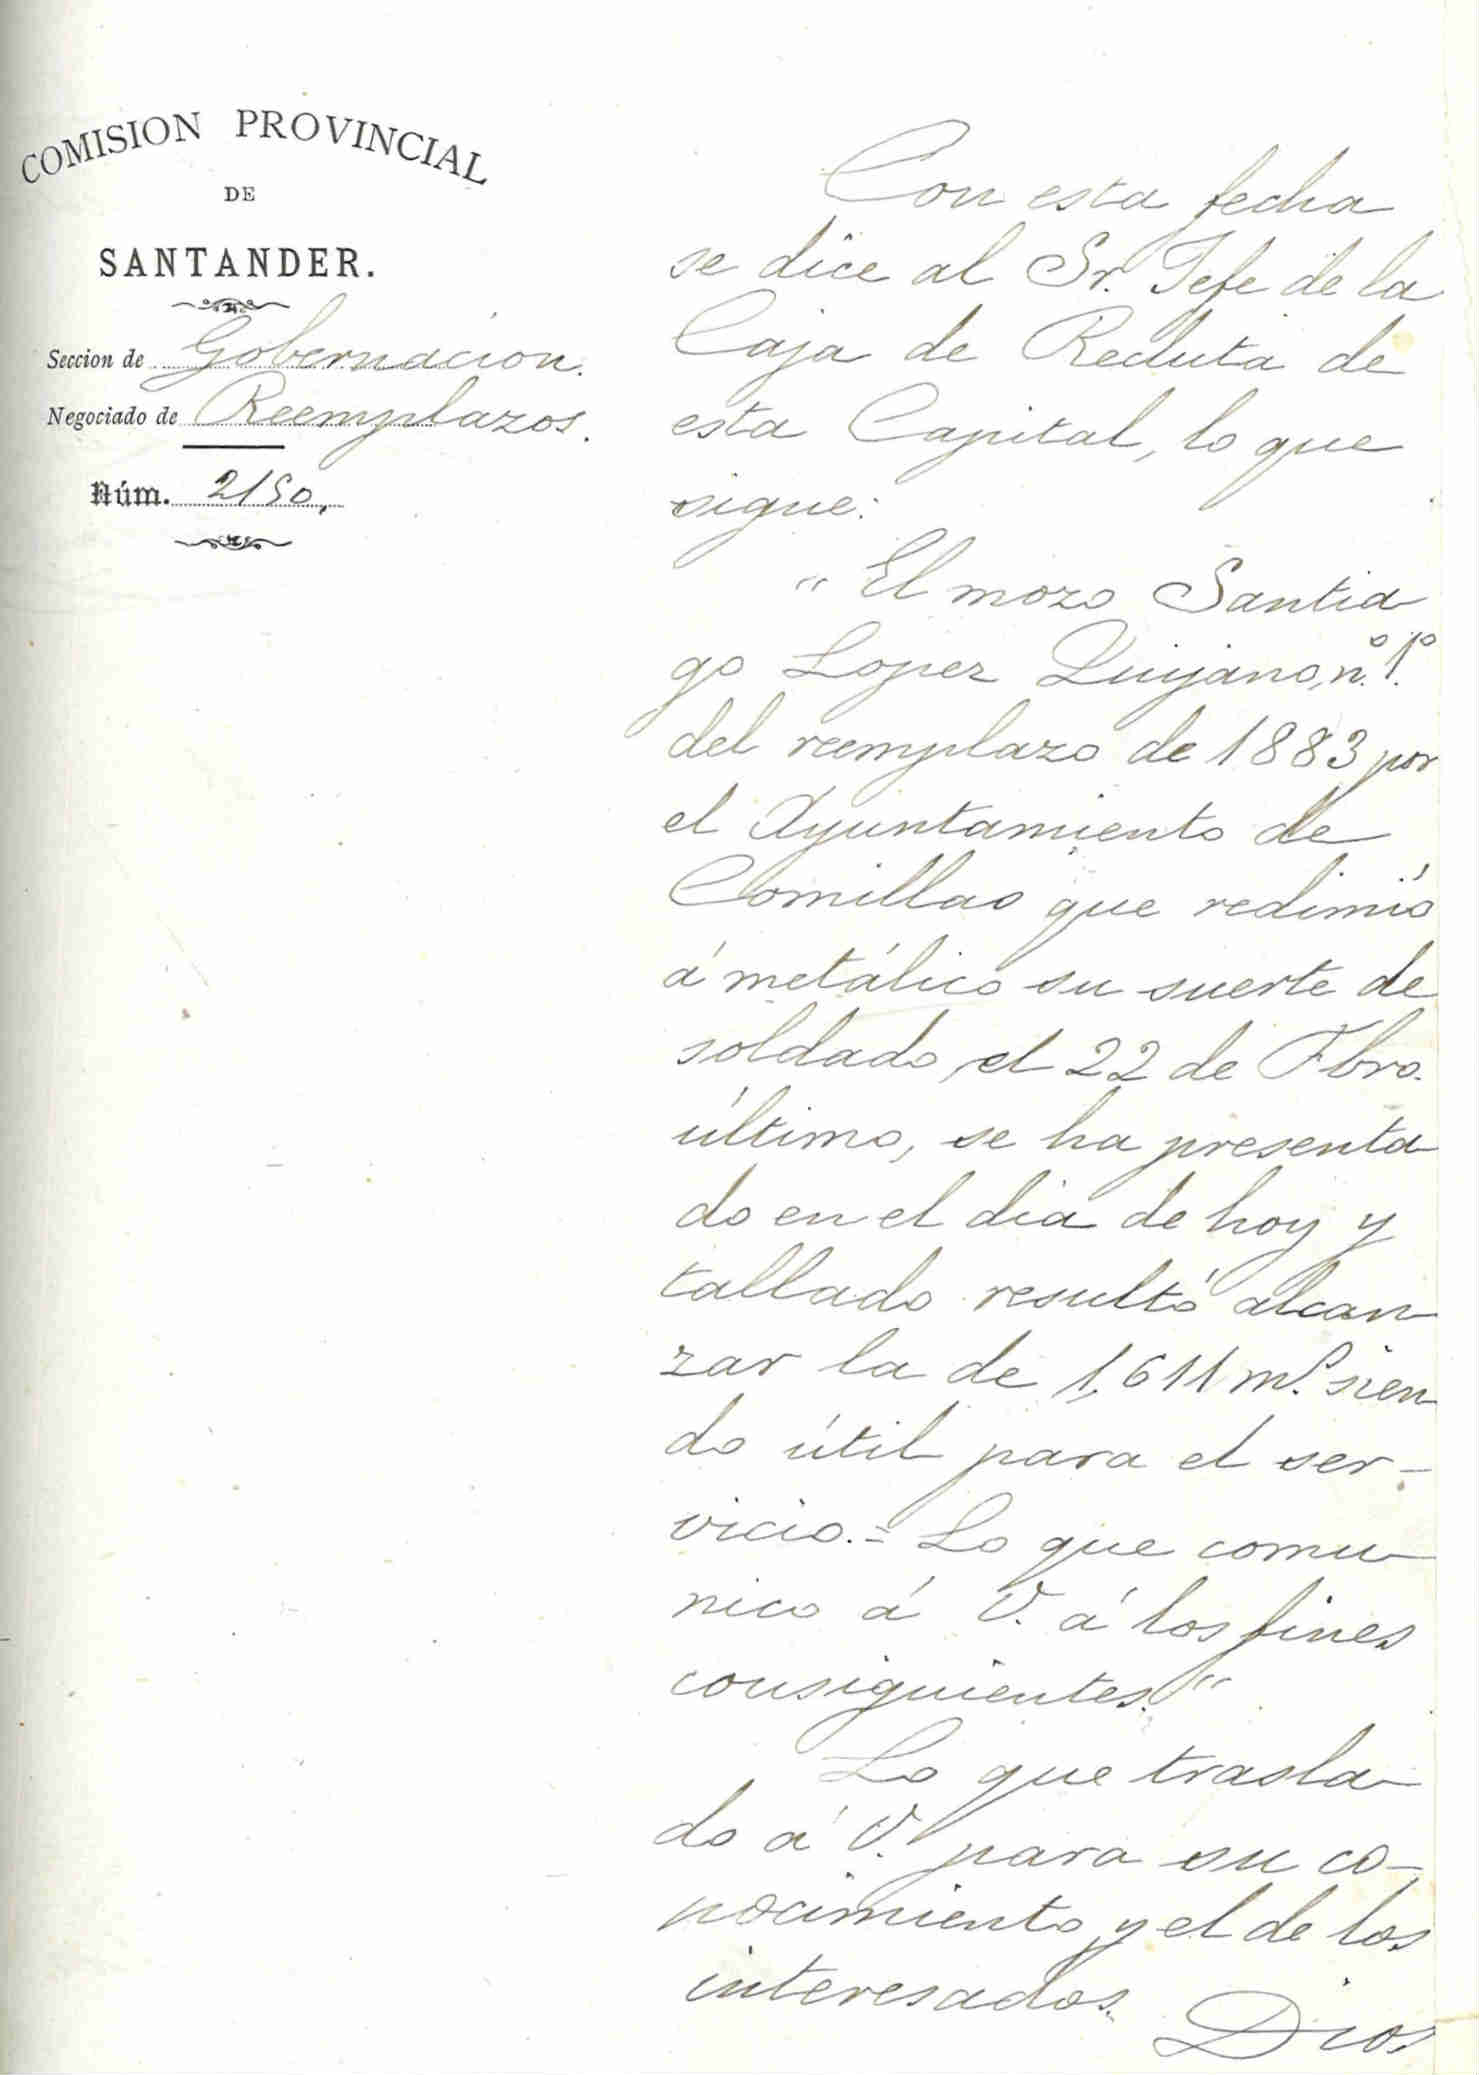 COMISION PROVINCIAL
DE
SANTANDER.
Seccion de Gobernacion.
Negociado de Reemplazos.
Núm. 2150,
Con esta fecha
se dice al Sr. Jefe de la
Caja de Recluta de
esta Capital, lo que
sigue:
"El mozo Santia
go Lopez Quijano, n.º 1.º
del reemplazo de 1883 por
el Ayuntamiento de
Comillas que redimió
á metálico su suerte de
soldado, el 22 de Fbro.
último, se ha presenta
do en el dia de hoy y
tallado resultó alcan
zar la de 1,611 m.s sien
do útil para el ser-
vicio.= Lo que comu
nico á V. á los fines
consiguientes."
Lo que trasla
do á V. para su co-
nocimiento y el de los
interesados. Dios